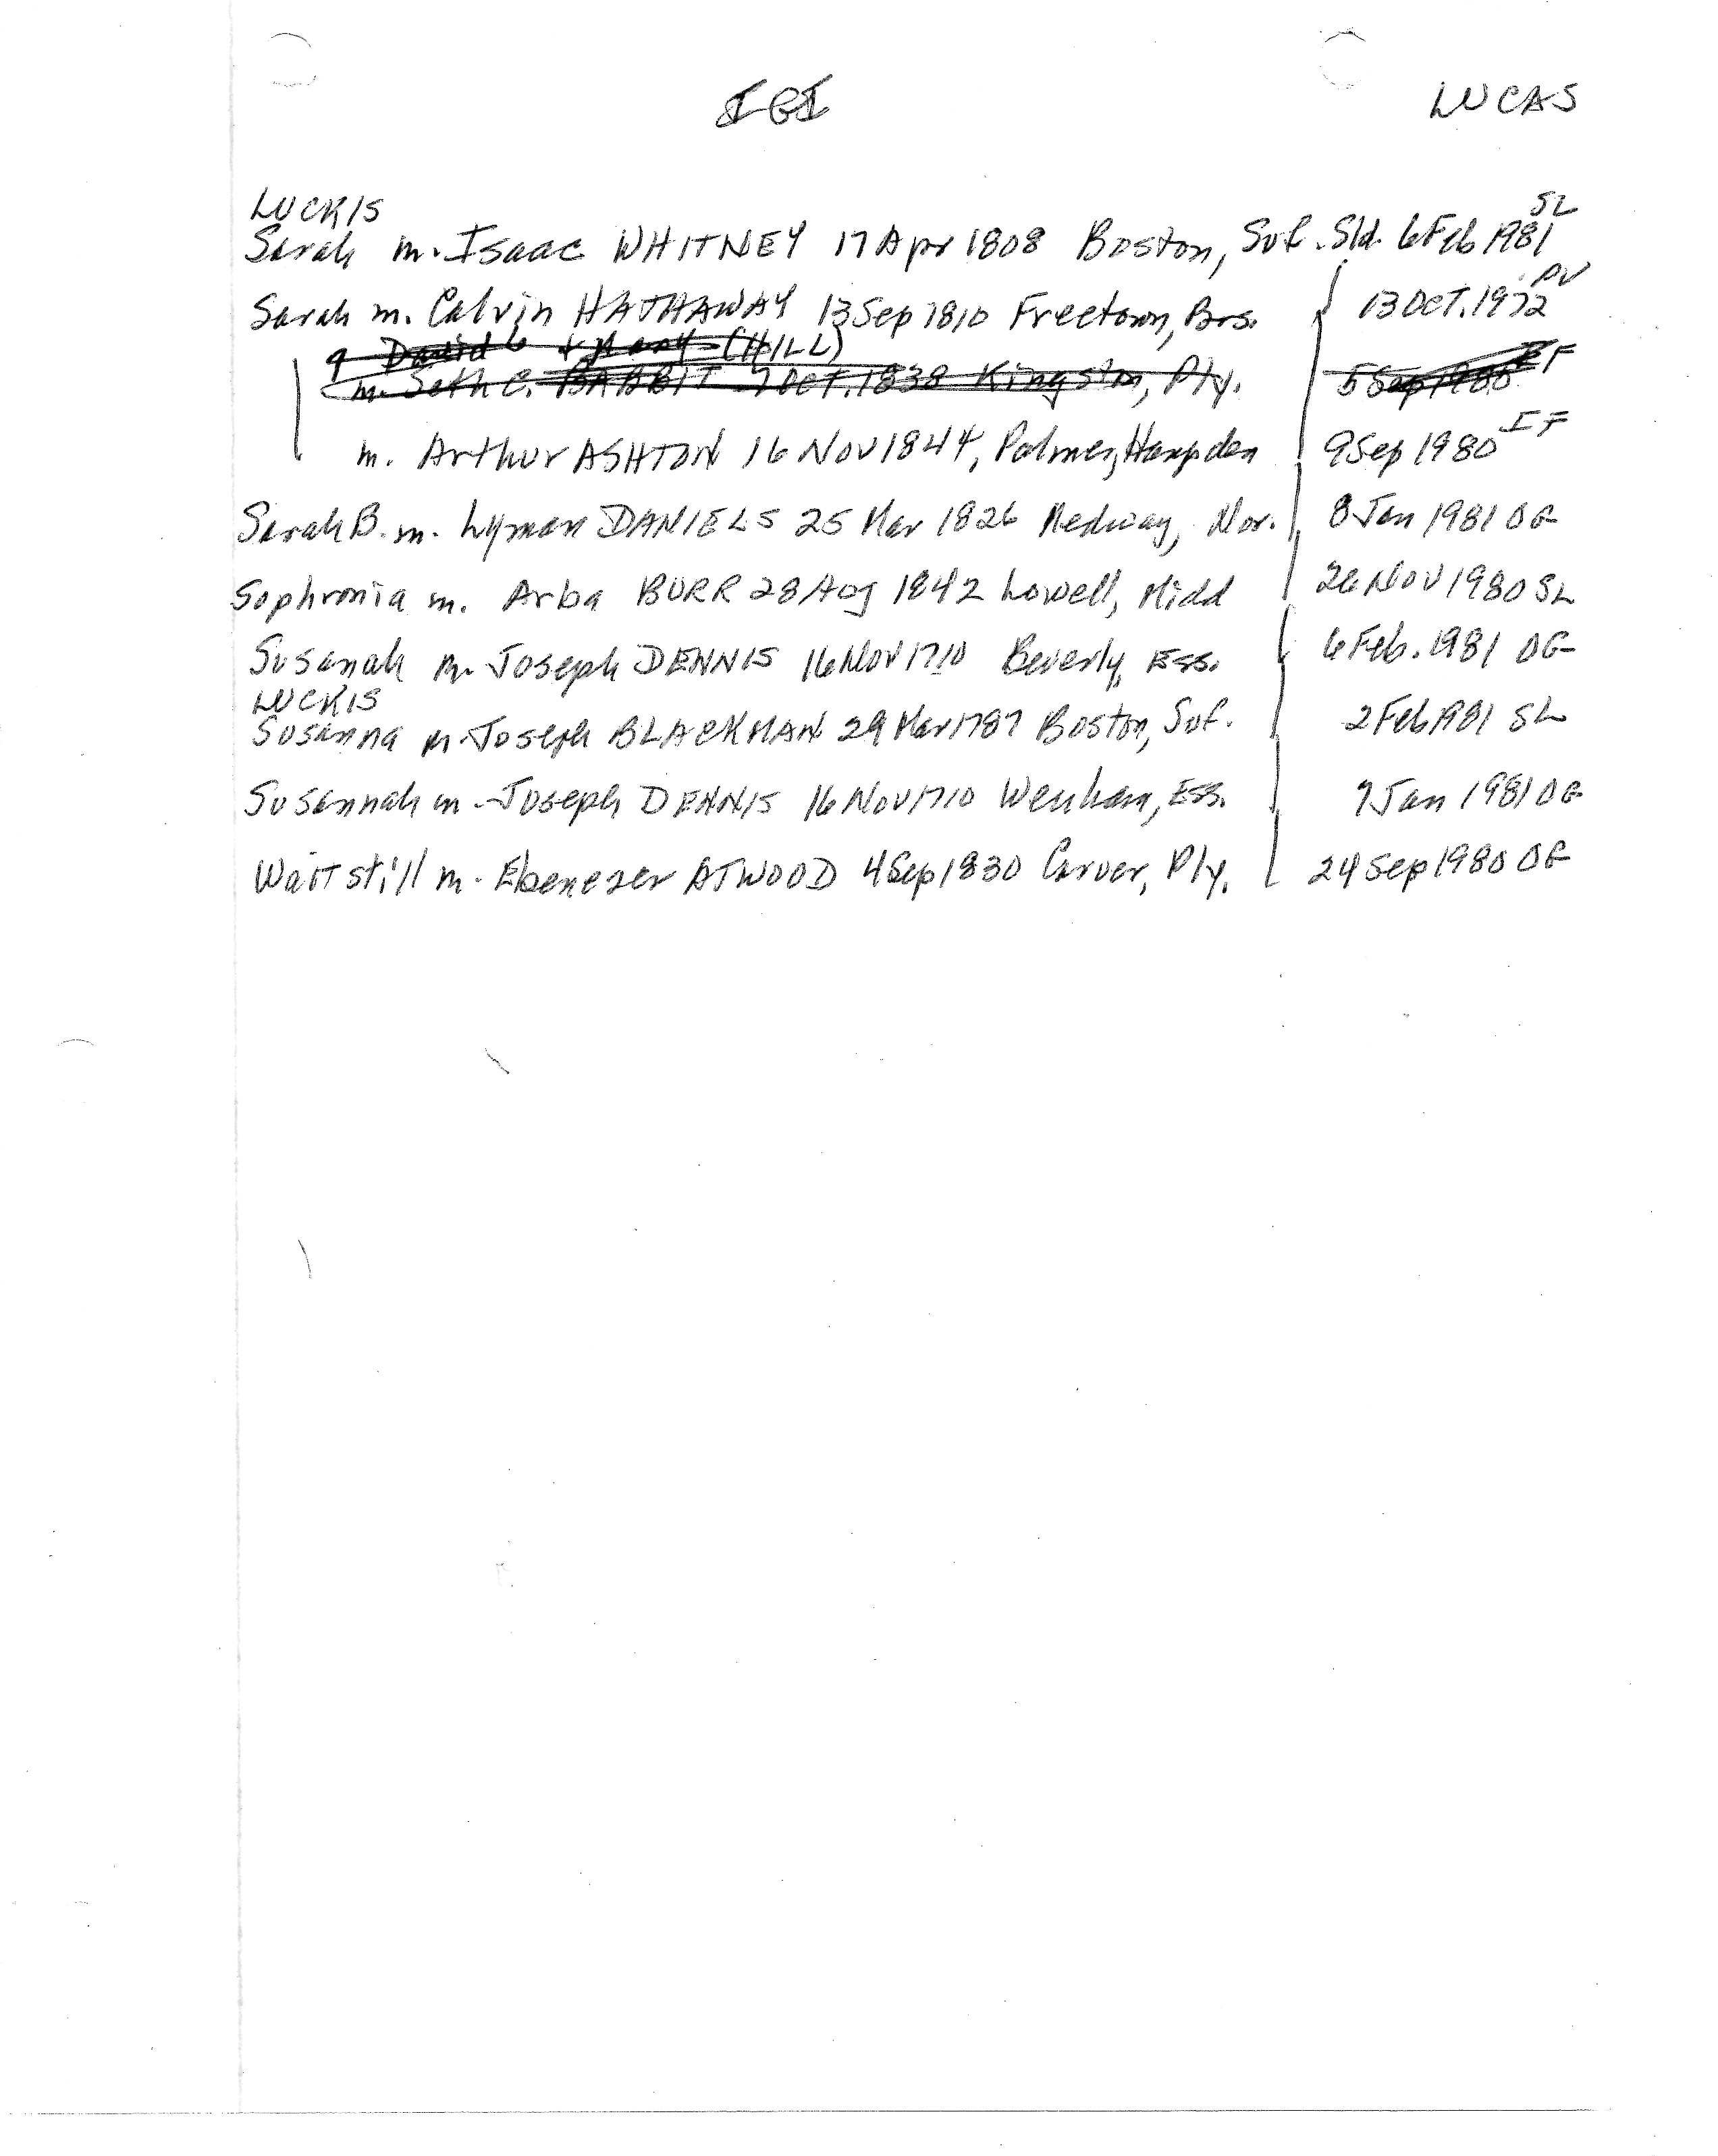 IGI LUCAS
LUCKIS SL
Sarah m. Isaac WHITNEY 17 Apr 1808 Boston, Suf. Sld. 6 Feb 1981
Sarah m. Calvin HATHAWAY 13 Sep 1810 Freetown, Brs. 13 OCT. 1972 PV
David + Mary (HILL)
m. Seth C. BABBIT 7 OCT. 1838 Kingston, Ply. 5 Sep 1980 IF
m. Arthur ASHTON 16 Nov 1844, Palmer, Hampden 9 Sep 1980 IF
Sarah B. m. Lyman DANIELS 25 Mar 1826 Medway, Nor. 8 Jan 1981 OG
Sophronia m. Arba BURR 28 Aug 1842 Lowell, Midd 26 NOV 1980 SL
Susanah m. Joseph DENNIS 16 NOV 1710 Beverly, Ess. 6 Feb. 1981 OG
LUCKIS
Susanna m. Joseph BLACKMAN 29 Mar 1787 Boston, Suf. 2 Feb 1981 SL
Susannah m. Joseph DENNIS 16 Nov 1710 Wenham, Ess. 7 Jan 1981 OG
Waitstill m. Ebenezer ATWOOD 4 Sep 1830 Carver, Ply. 24 Sep 1980 OG